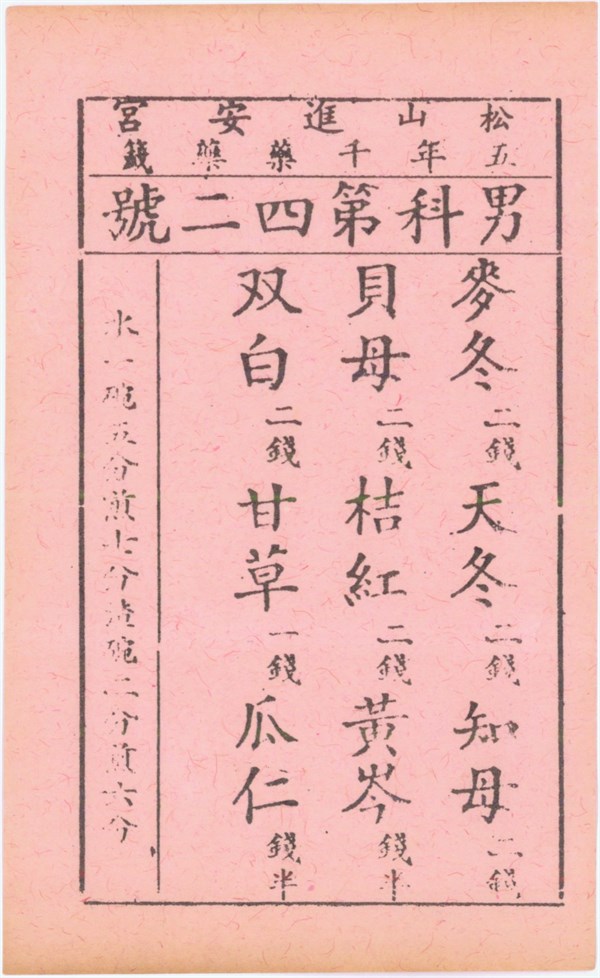 松山進安宮
五年千藥藥籤
男科第四二號
麥冬二錢天冬二錢知母二錢
貝母二錢桔紅二錢黃岑錢半
双白二錢甘草一錢瓜仁錢半
水一碗五分煎七分渣碗二分煎六分